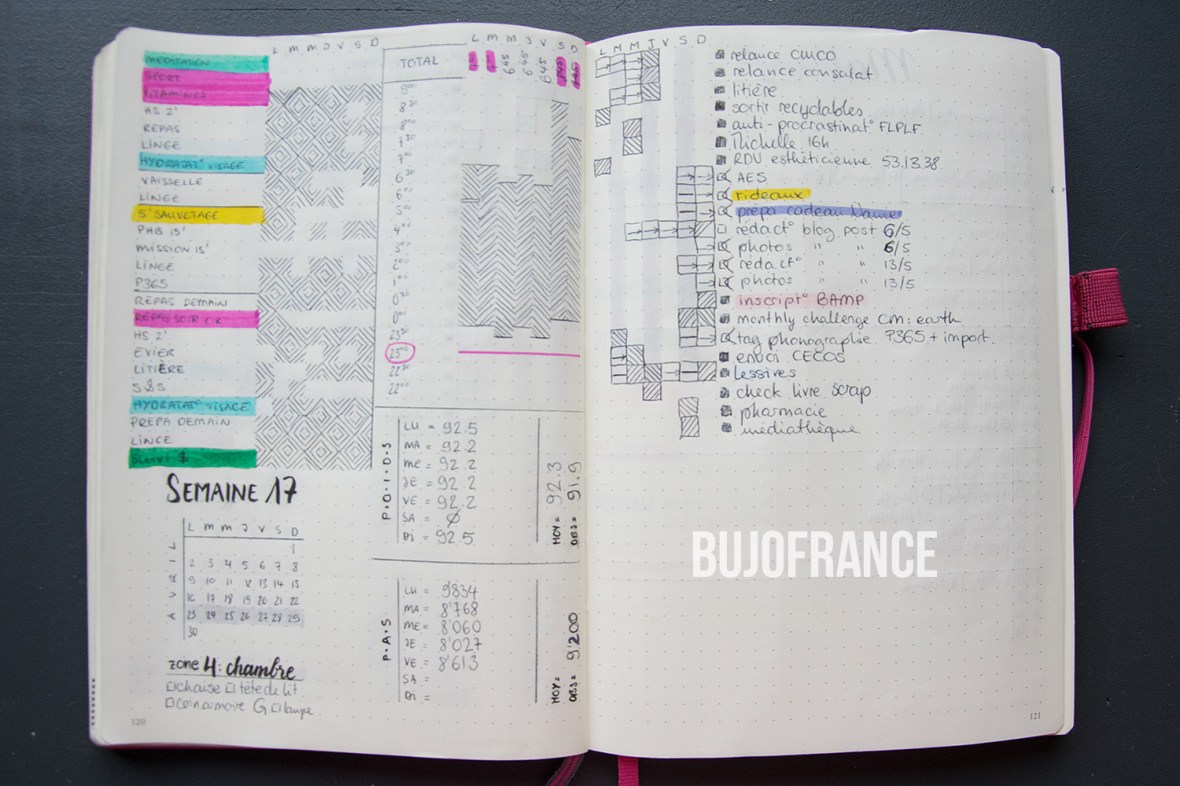 L M M J V S D
MÉDITATION
SPORT
VITAMINES
HS 2'
REPAS
LINGE
HYDRATAT° VISAGE
VAISSELLE
LINGE
5' SAUVETAGE
PHB 15'
MISSION 15'
LINGE
P365
REPAS DEMAIN
REPAS SOIR OK
HS 2'
EVIER
LITIÈRE
S&S
HYDRATAT° VISAGE
PREPA DEMAIN
LINGE
SUIVI $
SEMAINE 17
L M M J V S D
AVRIL
1
2 3 4 5 6 7 8
9 10 11 12 13 14 15
16 17 18 19 20 21 22
23 24 25 26 27 28 29
30
zone 4: chambre
chaise tête de lit
coin armoire G lampe
120
L M M J V S D
TOTAL
6 45 6 45 6 45
9 00
8 30
8 00
7 30
7 00
6 30
6 00
5 00
4 00
3 00
2 00
1 00
0 30
0 00
23 30
23 00
22 30
22 00
P.O.I.D.S
LU = 92.5
MA = 92.2
ME = 92.2
JE = 92.2
VE = 92.2
SA = Ø
DI = 92.5
MOY = 92.3
OBJ = 91.9
P.A.S
LU = 9834
MA = 8'768
ME = 8'060
JE = 8'027
VE = 8'613
SA =
DI =
MOY =
OBJ = 9'200
L M M J V S D
relance CMCO
relance consulat
litière
sortir recyclables
anti-procrastinat° FLPLF
Michelle 16h
RDV esthéticienne 53.13.38
AES
rideaux
prépa cadeau
rédact° blog post 6/5
photos " " 6/5
rédact° " " 13/5
photos " " 13/5
inscript° BAMP
monthly challenge CM: earth
tag phonographie P365 + import.
envoi CECOS
lessives
check livre scrap
pharmacie
médiathèque
BUJOFRANCE
121